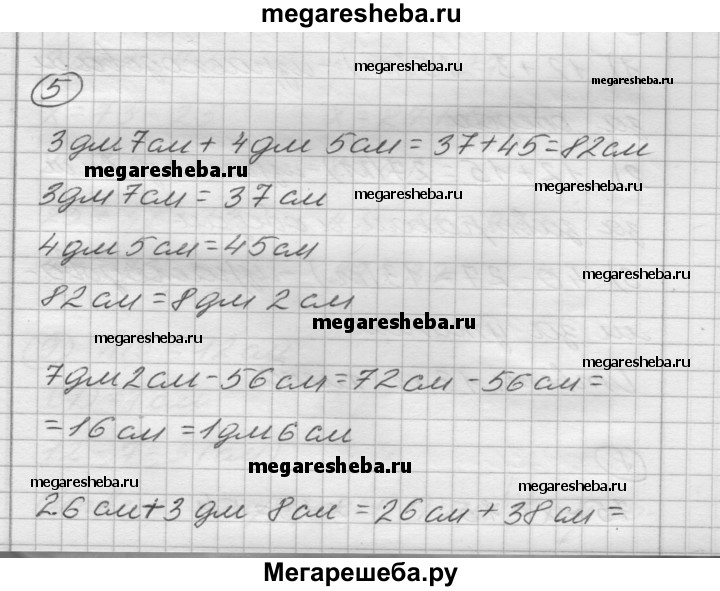 megaresheba.ru
megaresheba.ru
megaresheba.ru
5
3 дм 7 см + 4 дм 5 см = 37 + 45 = 82 см
megaresheba.ru
3 дм 7 см = 37 см
megaresheba.ru
megaresheba.ru
4 дм 5 см = 45 см
megaresheba.ru
82 см = 8 дм 2 см
megaresheba.ru
megaresheba.ru
megaresheba.ru
7 дм 2 см - 56 см = 72 см - 56 см =
= 16 см = 1 дм 6 см
megaresheba.ru
megaresheba.ru
megaresheba.ru
26 см + 3 дм 8 см = 26 см + 38 см =
Мегарешеба.ру